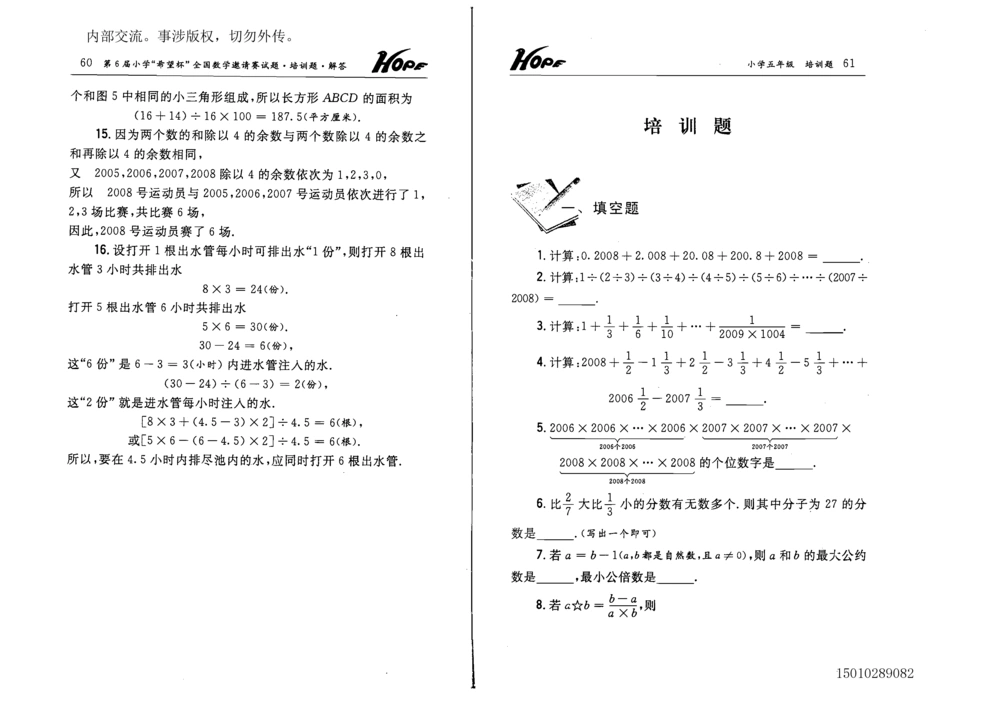 内部交流。事涉版权，切勿外传。
60 第6届小学“希望杯”全国数学邀请赛试题·培训题·解答 HOPE
个和图5中相同的小三角形组成,所以长方形ABCD的面积为
(16+14)÷16×100=187.5(平方厘米).
15.因为两个数的和除以4的余数与两个数除以4的余数之
和再除以4的余数相同,
又 2005,2006,2007,2008除以4的余数依次为1,2,3,0,
所以 2008号运动员与2005,2006,2007号运动员依次进行了1,
2,3场比赛,共比赛6场,
因此,2008号运动员赛了6场.
16.设打开1根出水管每小时可排出水“1份”,则打开8根出
水管3小时共排出水
8×3=24(份).
打开5根出水管6小时共排出水
5×6=30(份).
30-24=6(份),
这“6份”是6-3=3(小时)内进水管注入的水.
(30-24)÷(6-3)=2(份),
这“2份”就是进水管每小时注入的水.
[8×3+(4.5-3)×2]÷4.5=6(根),
或[5×6-(6-4.5)×2]÷4.5=6(根).
所以,要在4.5小时内排尽池内的水,应同时打开6根出水管.
HOPE 小学五年级 培训题 61
培训题
一、填空题
1.计算:0.2008+2.008+20.08+200.8+2008=______.
2.计算:1÷(2÷3)÷(3÷4)÷(4÷5)÷(5÷6)÷…÷(2007÷
2008)=______.
3.计算:1+1/3+1/6+1/10+…+1/(2009×1004)=______.
4.计算:2008+1/2-1 1/3+2 1/2-3 1/3+4 1/2-5 1/3+…+
2006 1/2-2007 1/3=______.
5.2006×2006×…×2006×2007×2007×…×2007×
2006个2006 2007个2007
2008×2008×…×2008的个位数字是______.
2008个2008
6.比2/7大比1/3小的分数有无数多个.则其中分子为27的分
数是______.(写出一个即可)
7.若a=b-1(a,b都是自然数,且a≠0),则a和b的最大公约
数是______,最小公倍数是______.
8.若a☆b=(b-a)/(a×b),则
15010289082